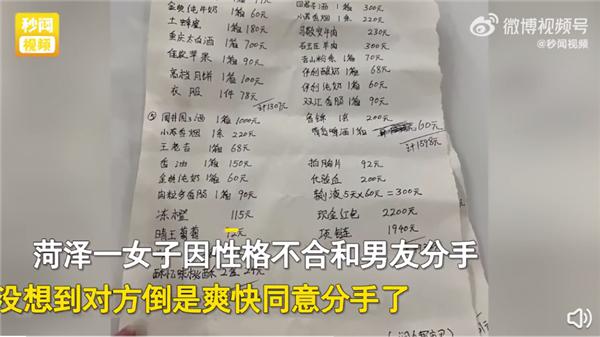 秒闻
视频
微博视频号
@秒闻视频
金典纯牛奶 1箱 60元
土蜂蜜 1箱 180元
重庆太白酒 1箱 700元
佳欧苹果 1箱 90元
高档月饼 1箱 100元
衣服 1件 78元
计1308元
⑤ 国井国3酒 1箱 1000元
小苏香烟 1条 220元
王老吉 1箱 68元
香油 1箱 150元
金典纯奶 1箱 60元
肉粒多香肠 1箱 90元
冻
115元
晴王葡萄 1
2盒 24元
1箱 300元
小苏香烟 1条 220元
牛肉 230元
羊肉 230元
1箱 70元
伊利酸奶 1箱 68元
伊利纯奶 1箱 60元
双汇香肠 1箱 90元
1条 200元
啤酒 1箱 60元
计1598元
拍胸片 92元
化验血 200元
输液5天×60元=300元
现金红包 2200元
项链 1940元
元
菏泽一女子因性格不合和男友分手
没想到对方倒是爽快同意分手了